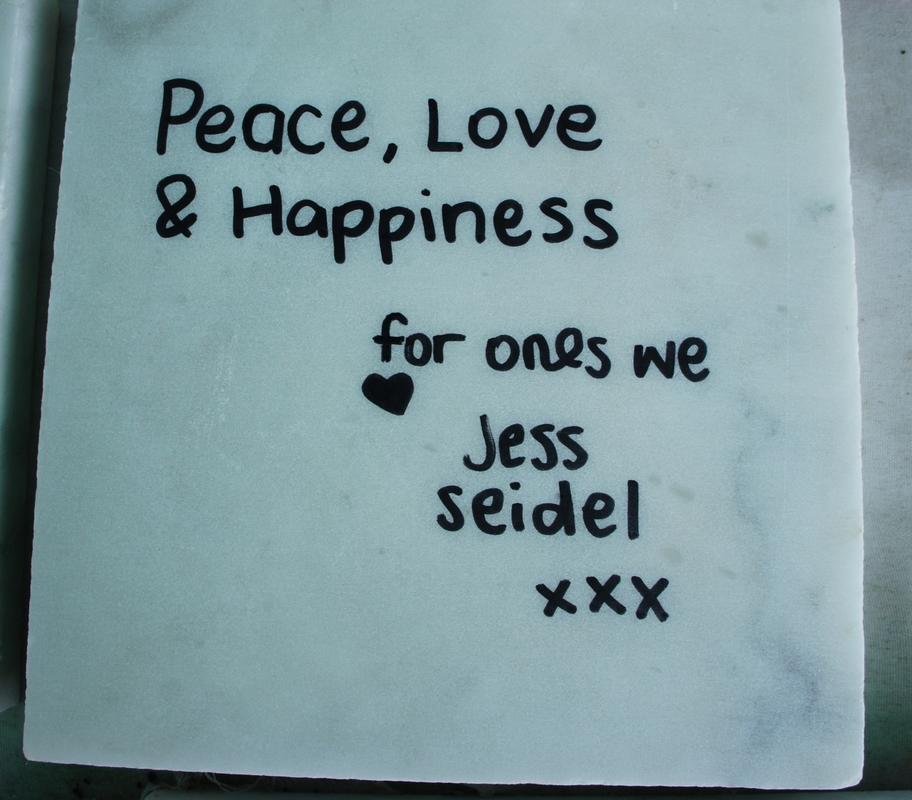 Peace, Love
& Happiness
for ones we
♥
Jess
seidel
xxx